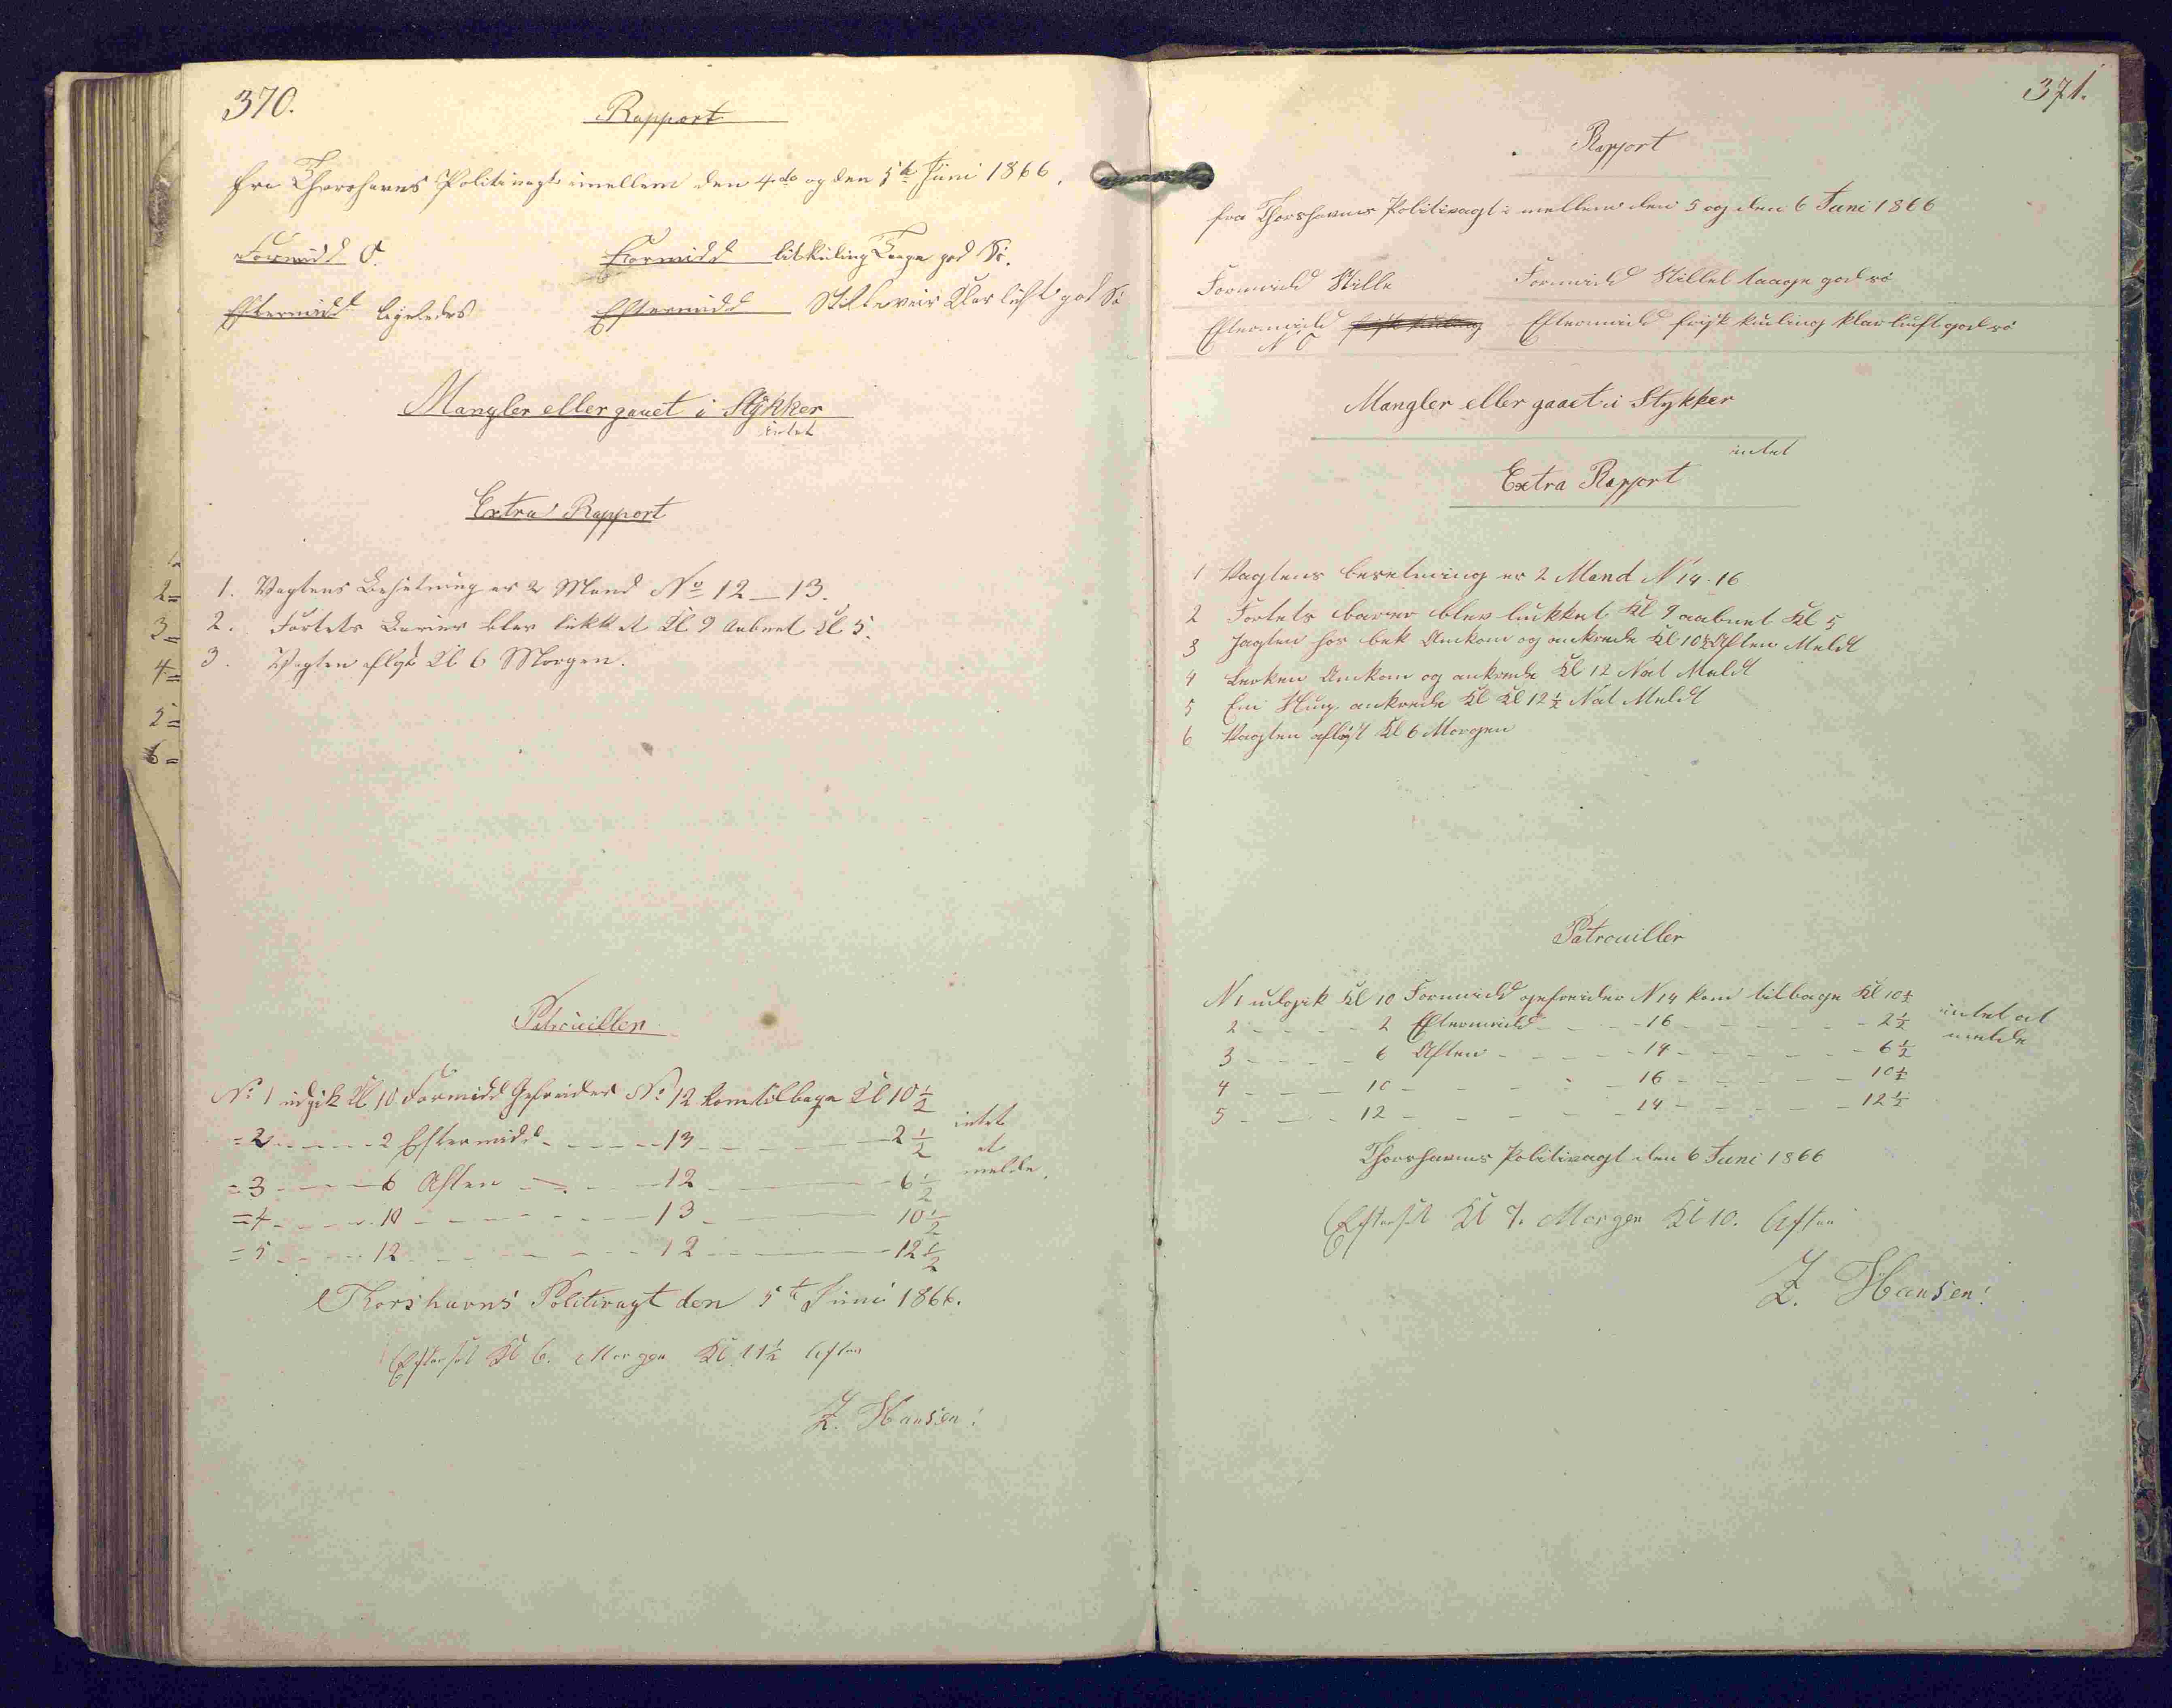 370.
Rapport
fra Thorshavns Politivagt imellem den 4de og den 5te Juni 1866.
Formidd O. Formidd lit Kuling Taage god Sö.
Eftermidd ligeledes Eftermidd Stilleveir Klar luft god Sö
Mangler eller gaaet i Stykker
intet
Extra Rapport
1. Vagtens Besætning er 2 Mand No 12 — 13.
2. Fortets Barier blev lukket Kl 9 Aabnet Kl 5.
3. Vagten afløst Kl 6 Morgen.
Patrouillen
No 1 udgik Kl 10 Formidd Gefreider No 12 kom tilbage Kl 10 1/2
= 2 - - - - 2 Eftermidd - - - - 13 - - - - 2 1/2 intet
at
= 3 - - - - 6 Aften - - - - 12 - - - - 6 1/2 melde.
= 4 - - - - 10 - - - - 13 - - - - 10 1/2
= 5 - - - - 12 - - - - 12 - - - - 12 1/2
Thorshavns Politivagt den 5te Juni 1866.
Efterset Kl 6. Morgen Kl 11 1/2 Aften
Z. Hansen.
2 =
3 =
4 =
5 =
6 =
371.
Rapport
fra Thorshavns Politivagt i mellem den 5 og den 6 Juni 1866
Formidd Stille Formidd Stillet taage god sö
Eftermidd frisk kuling Eftermidd frisk kuling klar luft god sö
N O
Mangler eller gaaet i Stykker
intet
Extra Rapport
1 Vagtens besetning er 2 Mand N 14 - 16
2 Fortets barier blev lukket Kl 9 aabnet Kl 5
3 Jagten Ankom og ankrede Kl 10 1/2 Aften Meldt
4 Ankom og ankrede Kl 12 Nat Meldt
5 En ankrede Kl Kl 12 1/2 Nat Meldt
6 Vagten afløst Kl 6 Morgen
Patrouiller
N 1 udgik Kl 10 Formidd gefreider N 14 kom tilbage Kl 10 1/2
2 - - - - 2 Eftermidd - - - 16 - - - - 2 1/2 intet at
3 - - - - 6 Aften - - - - 14 - - - - 6 1/2 melde
4 - - - - 10 - - - - 16 - - - - 10 1/2
5 - - - - 12 - - - - 14 - - - - 12 1/2
Thorshavns Politivagt den 6 Juni 1866
Efterset Kl 7. Morgen Kl 10. Aften
Z. Hansen.